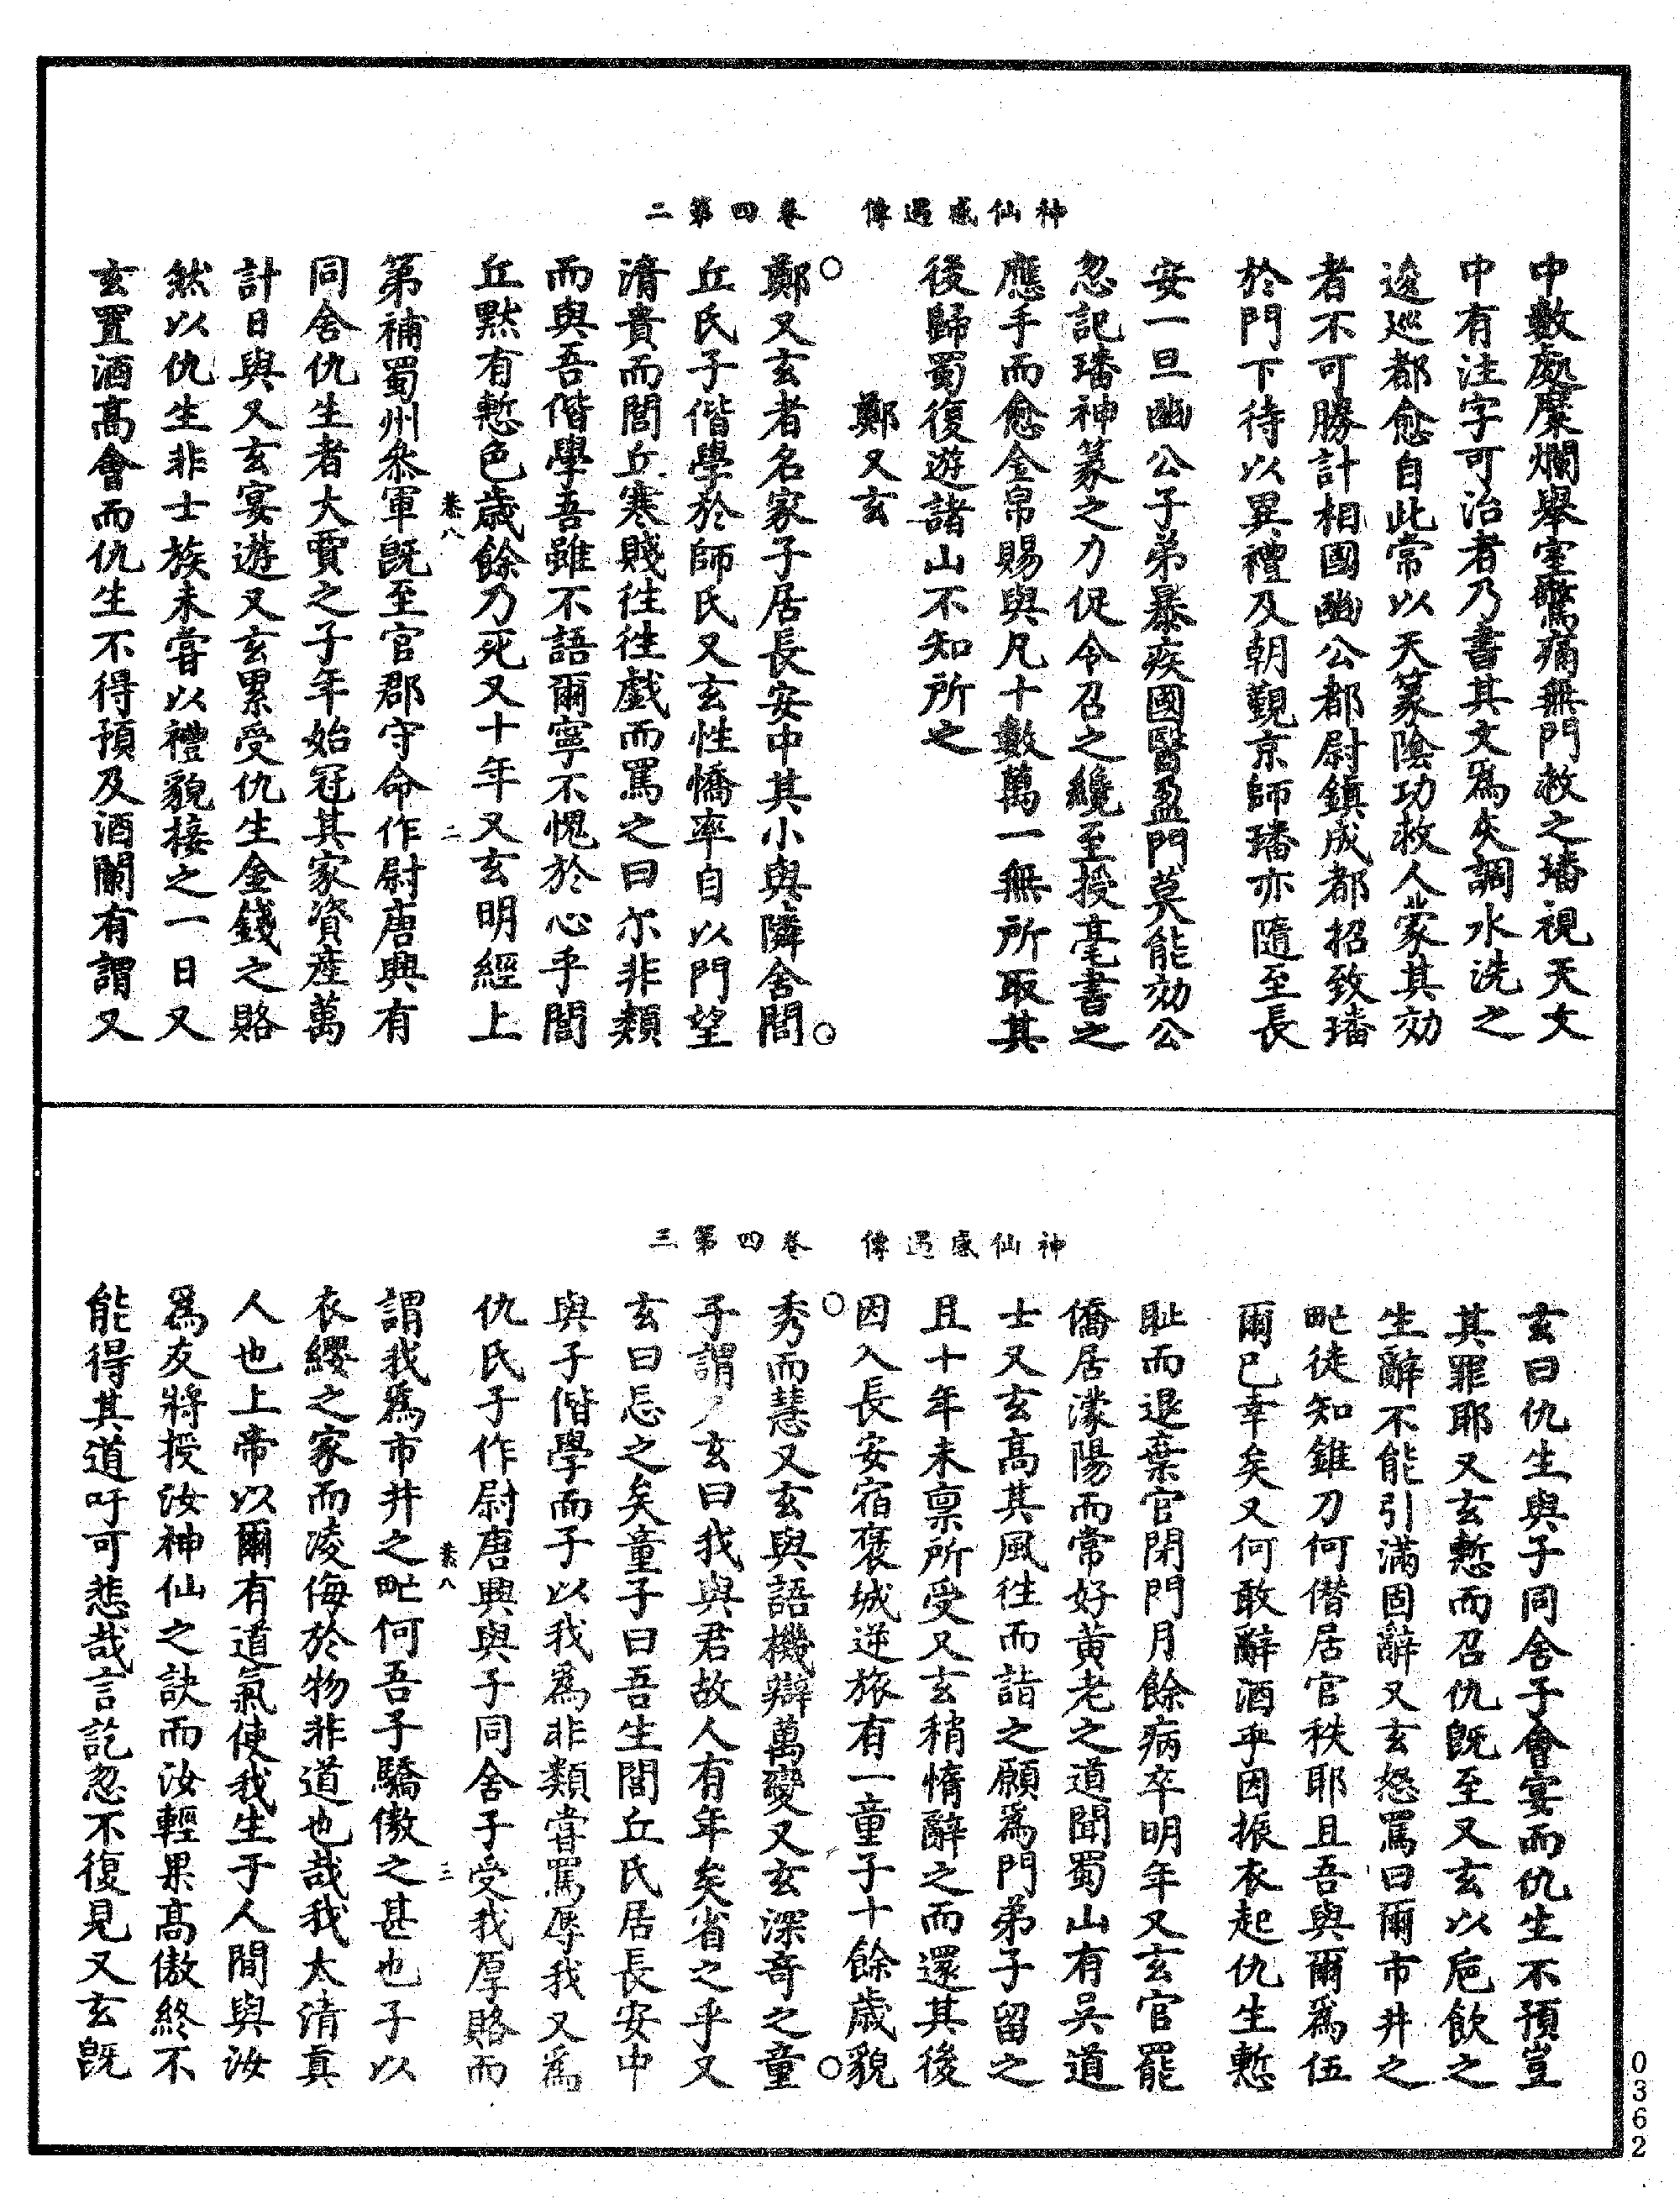 神仙感遇傳 卷四第二
中數處糜爛舉室驚痛無門救之璠視天文
中有注字可治者乃書其文爲灰調水洗之
逡巡都愈自此常以天篆陰功救人蒙其効
者不可勝計相國豳公都尉鎮成都招致璠
於門下待以異禮及朝覲京師璠亦隨至長
安一旦豳公子弟暴疾國醫盈門莫能効公
忽記璠神篆之力促令召之纔至授毫書之
應手而愈金帛賜與凡十數萬一無所取其
後歸蜀復遊諸山不知所之
鄭又玄
鄭又玄者名家子居長安中其小與隣舍閭
丘氏子偕學於師氏又玄性憍率自以門望
清貴而閭丘寒賤往往戲而罵之曰尔非類
而與吾偕學吾雖不語爾寧不愧於心乎閭
丘默有慙色歲餘乃死又十年又玄明經上
第補蜀州叅軍旣至官郡守命作尉唐興有
同舍仇生者大賈之子年始冠其家資產萬
計日與又玄宴遊又玄累受仇生金錢之賂
然以仇生非士族未嘗以禮貌接之一日又
玄置酒高會而仇生不得預及酒闌有謂又
恭八 二
神仙感遇傳 卷四第三
玄曰仇生與子同舍子會宴而仇生不預豈
其罪耶又玄慙而召仇旣至又玄以卮飲之
生辭不能引滿固辭又玄怒罵曰爾市井之
甿徒知錐刀何僭居官秩耶且吾與爾爲伍
爾已幸矣又何敢辭酒乎因振衣起仇生慙
耻而退棄官閉門月餘病卒明年又玄官罷
僑居濛陽而常好黃老之道聞蜀山有吳道
士又玄高其風往而詣之願爲門弟子留之
且十年未禀所受又玄稍惰辭之而還其後
因入長安宿褒城逆旅有一童子十餘歲貌
秀而慧又玄與語機辯萬變又玄深奇之童
子謂又玄曰我與君故人有年矣省之乎又
玄曰忘之矣童子曰吾生閭丘氏居長安中
與子偕學而子以我爲非類嘗罵辱我又爲
仇氏子作尉唐興與子同舍子受我厚賂而
謂我爲市井之甿何吾子驕傲之甚也子以
衣纓之家而淩侮於物非道也哉我太清真
人也上帝以爾有道氣使我生于人間與汝
爲友將授汝神仙之訣而汝輕果高傲終不
能得其道吁可悲哉言訖忽不復見又玄旣
恭八 三
0362